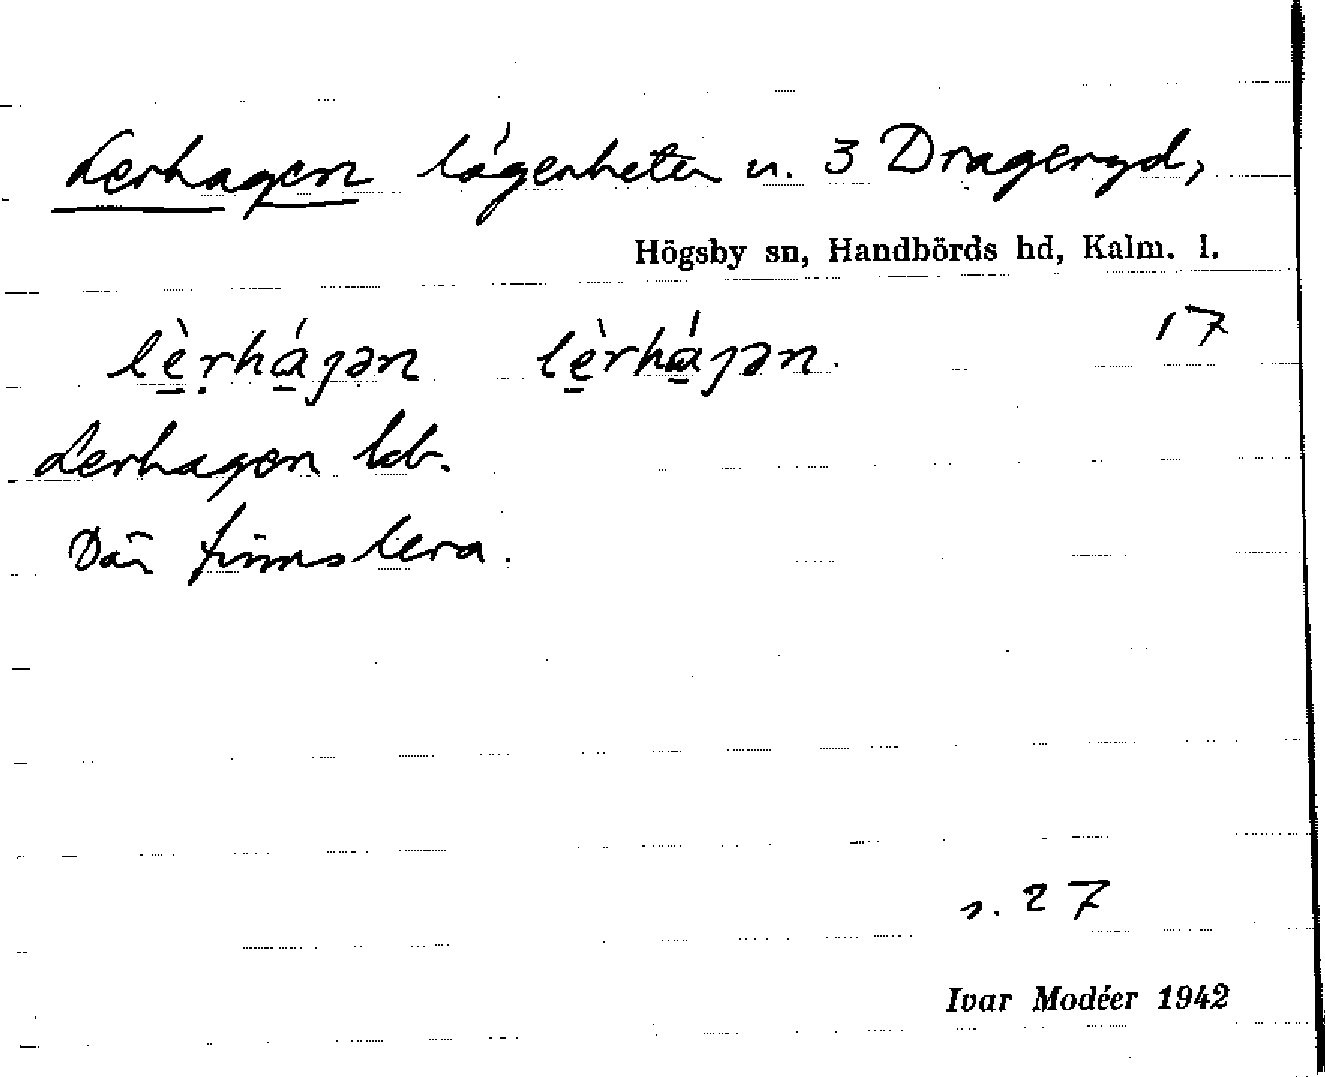 Lerhagen lägenheter u. 3 Drageryd,
Högsby sn, Handbörds hd, Kalm. l.
17
lè̱ṛhá̱ɡən lè̱rhá̱ɡən.
Lerhagen ldb.
Där finns lera.
s. 27
Ivar Modéer 1942